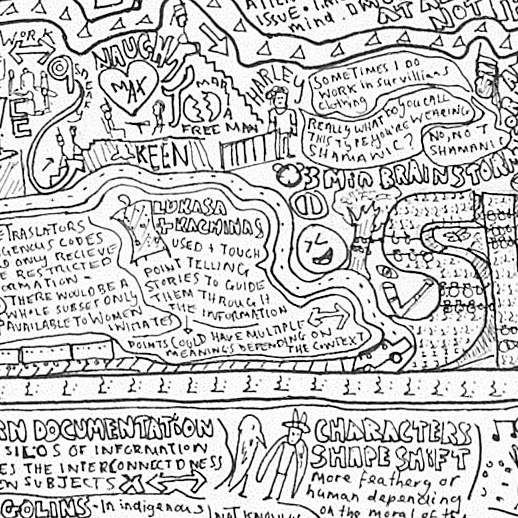 ISSUE.
mind.
AT
NOT
WORK
SNEAK
NAUGH
MAX
MAR
FREE MAN
KEEN
HARLEY
SOMETIMES I DO
WORK in survillians
clothing
REALLY WHAT DO YOU CALL
THIS TYPE YOU'RE WEARING
SHAMANIC?
NO, NOT
SHAMANI
3 Min BRAINSTOR
TRASLATORS
IGENOUS CODES
D ONLY RECIEVE
E RESTRICTED
ORMATION -
THERE WOULD BE A
WHOLE SUBSET ONLY
AVAILABLE TO WOMEN
INITIATES
LUKASA
+ KACHINAS
USED + TOUCH
POINT TELLING
STORIES TO GUIDE
THEM THROUGH
THE INFORMATION
POINTS COULD HAVE MULTIPLE
MEANINGS DEPENDING ON
THE CONTEXT
RN DOCUMENTATION
SILOS OF INFORMATION
ES THE INTERCONNECTDNESS
EN SUBJECTS
GOLINS - In indigenous
NOT KNOW
CHARACTERS
SHAPE SHIFT
more feathery or
human depending
on the moral of th